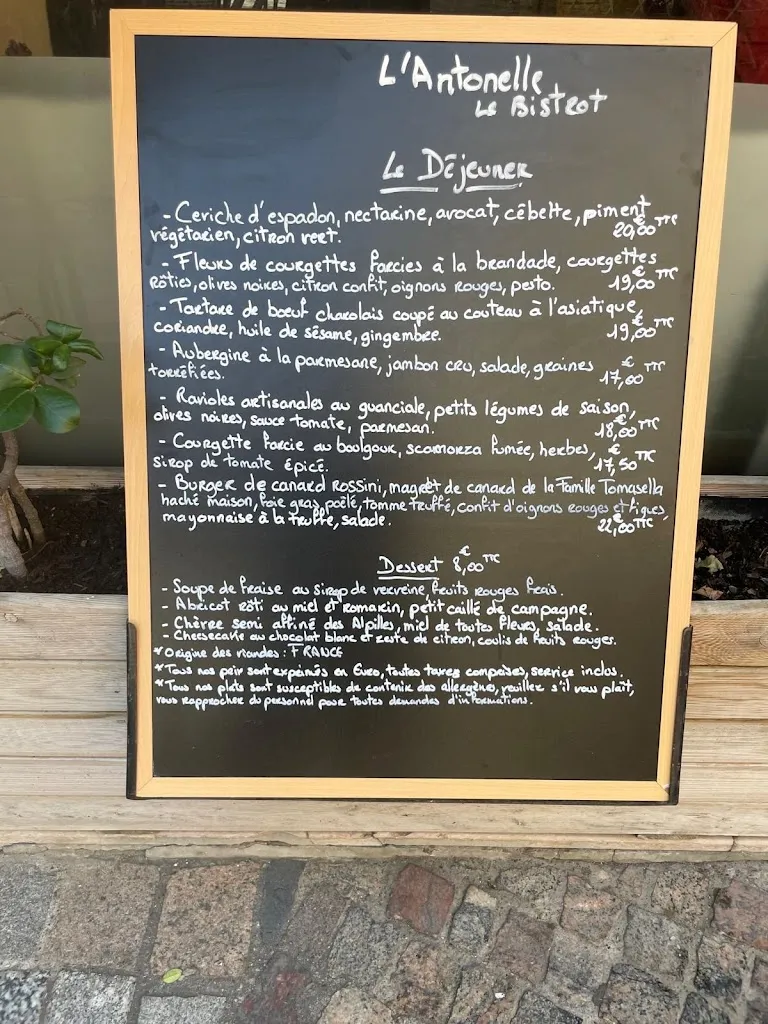 L'Antonelle
Le Bistrot
Le Déjeuner
- Ceviche d'espadon, nectarine, avocat, cébette, piment
végétarien, citron vert. 20,00 € TTC
- Fleurs de courgettes farcies à la brandade, courgettes
rôties, olives noires, citron confit, oignons rouges, pesto. 19,00 € TTC
- Tartare de boeuf charolais coupé au couteau à l'asiatique,
coriandre, huile de sésame, gingembre. 19,00 € TTC
- Aubergine à la parmesane, jambon cru, salade, graines
torréfiées. 17,00 € TTC
- Ravioles artisanales au guanciale, petits légumes de saison,
olives noires, sauce tomate, parmesan. 18,00 € TTC
- Courgette farcie au boulgour, scamorza fumée, herbes,
sirop de tomate épicé. 17,50 € TTC
- Burger de canard Rossini, magret de canard de la Famille Tomasella
haché maison, foie gras poêlé, tomme truffé, confit d'oignons rouges et figues,
mayonnaise à la truffe, salade. 22,00 € TTC
Dessert 8,00 € TTC
- Soupe de fraise au sirop de verveine, fruits rouges frais.
- Abricot rôti au miel et romarin, petit caillé de campagne.
- Chèvre semi affiné des Alpilles, miel de toutes fleurs, salade.
- Cheesecake au chocolat blanc et zeste de citron, coulis de fruits rouges.
* Origine des viandes : FRANCE
* Tous nos prix sont exprimés en Euro, toutes taxes comprises, service inclus.
* Tous nos plats sont susceptibles de contenir des allergène, veuillez s'il vous plaît,
vous rapprocher du personnel pour toutes demandes d'informations.